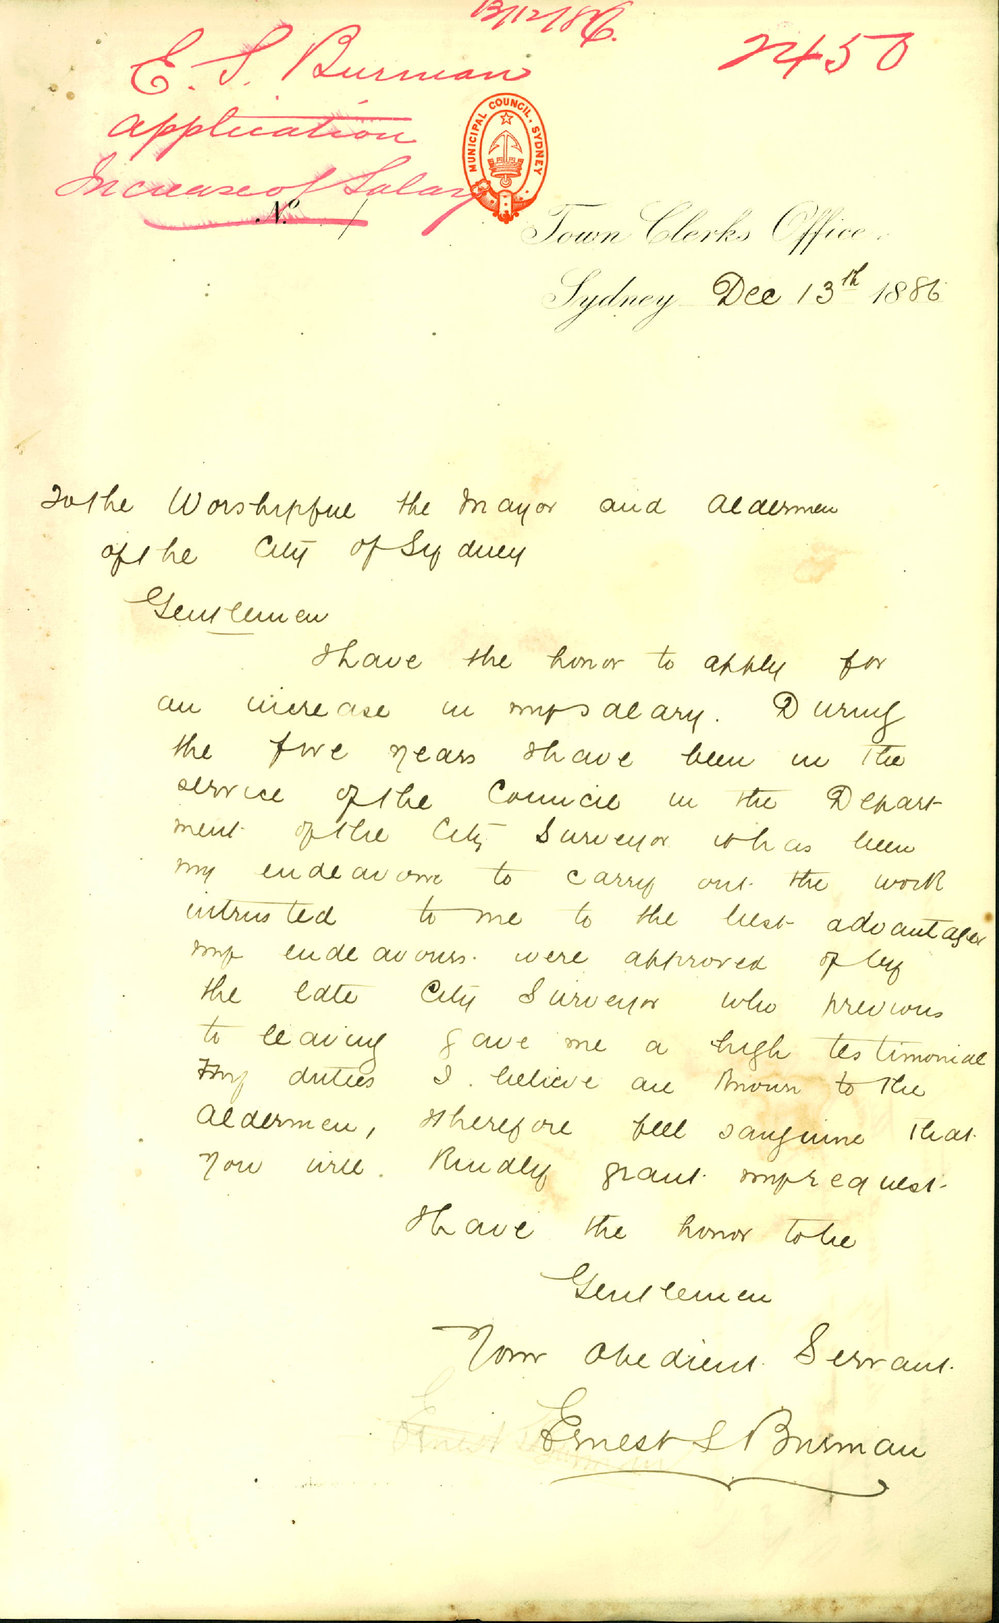 13/12/86.
2450
E. S. Burman
Application
Increase of Salary
MUNICIPAL COUNCIL. SYDNEY
No. /
Town Clerks Office.
Sydney Dec 13th 1886
To the Worshipful the Mayor and Aldermen
of the City of Sydney
Gentlemen
I have the honor to apply for
an increase in my salary. During
the five years I have been in the
service of the Council in the Depart
ment of the City Surveyor it has been
my endeavour to carry out the work
intrusted to me to the best advantage
my endeavours were approved of by
the late City Surveyor who previous
to leaving gave me a high testimonial
My duties I believe are known to the
Aldermen, I therefore feel sanguine that
you will kindly grant my request.
I have the honor to be
Gentlemen
Your Obedient Servant.
Ernest S Burman